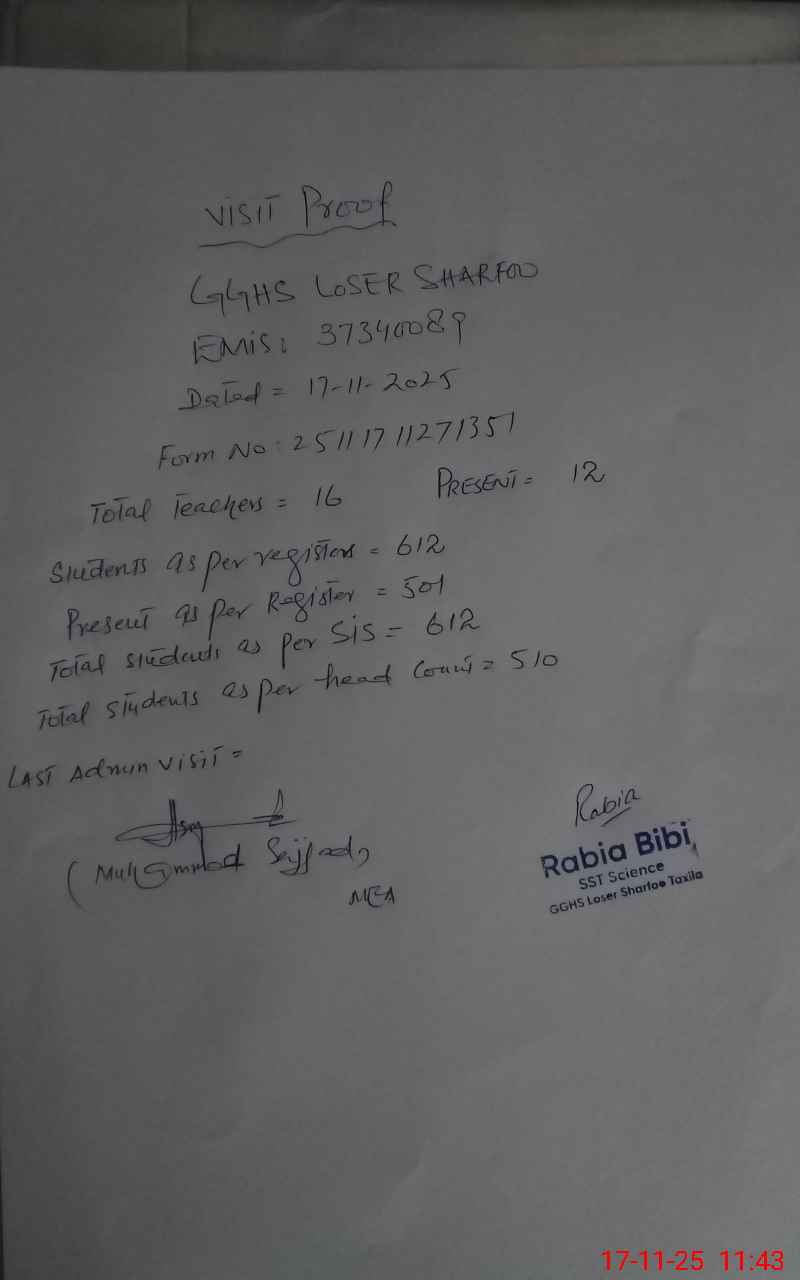 Visit Proof
GGHS LOSER SHARFOO
EMIS: 37340089
Dated = 17-11-2025
Form No: 25111711271351
Total Teachers = 16 PRESENT = 12
Students as per registers = 612
Present as per Register = 501
Total students as per SIS = 612
Total students as per head Count = 510
LAST Admin Visit =
Rabia
(Muhammad Sajjad)
MEA
Rabia Bibi
SST Science
GGHS Loser Sharfoo Taxila
17-11-25 11:43